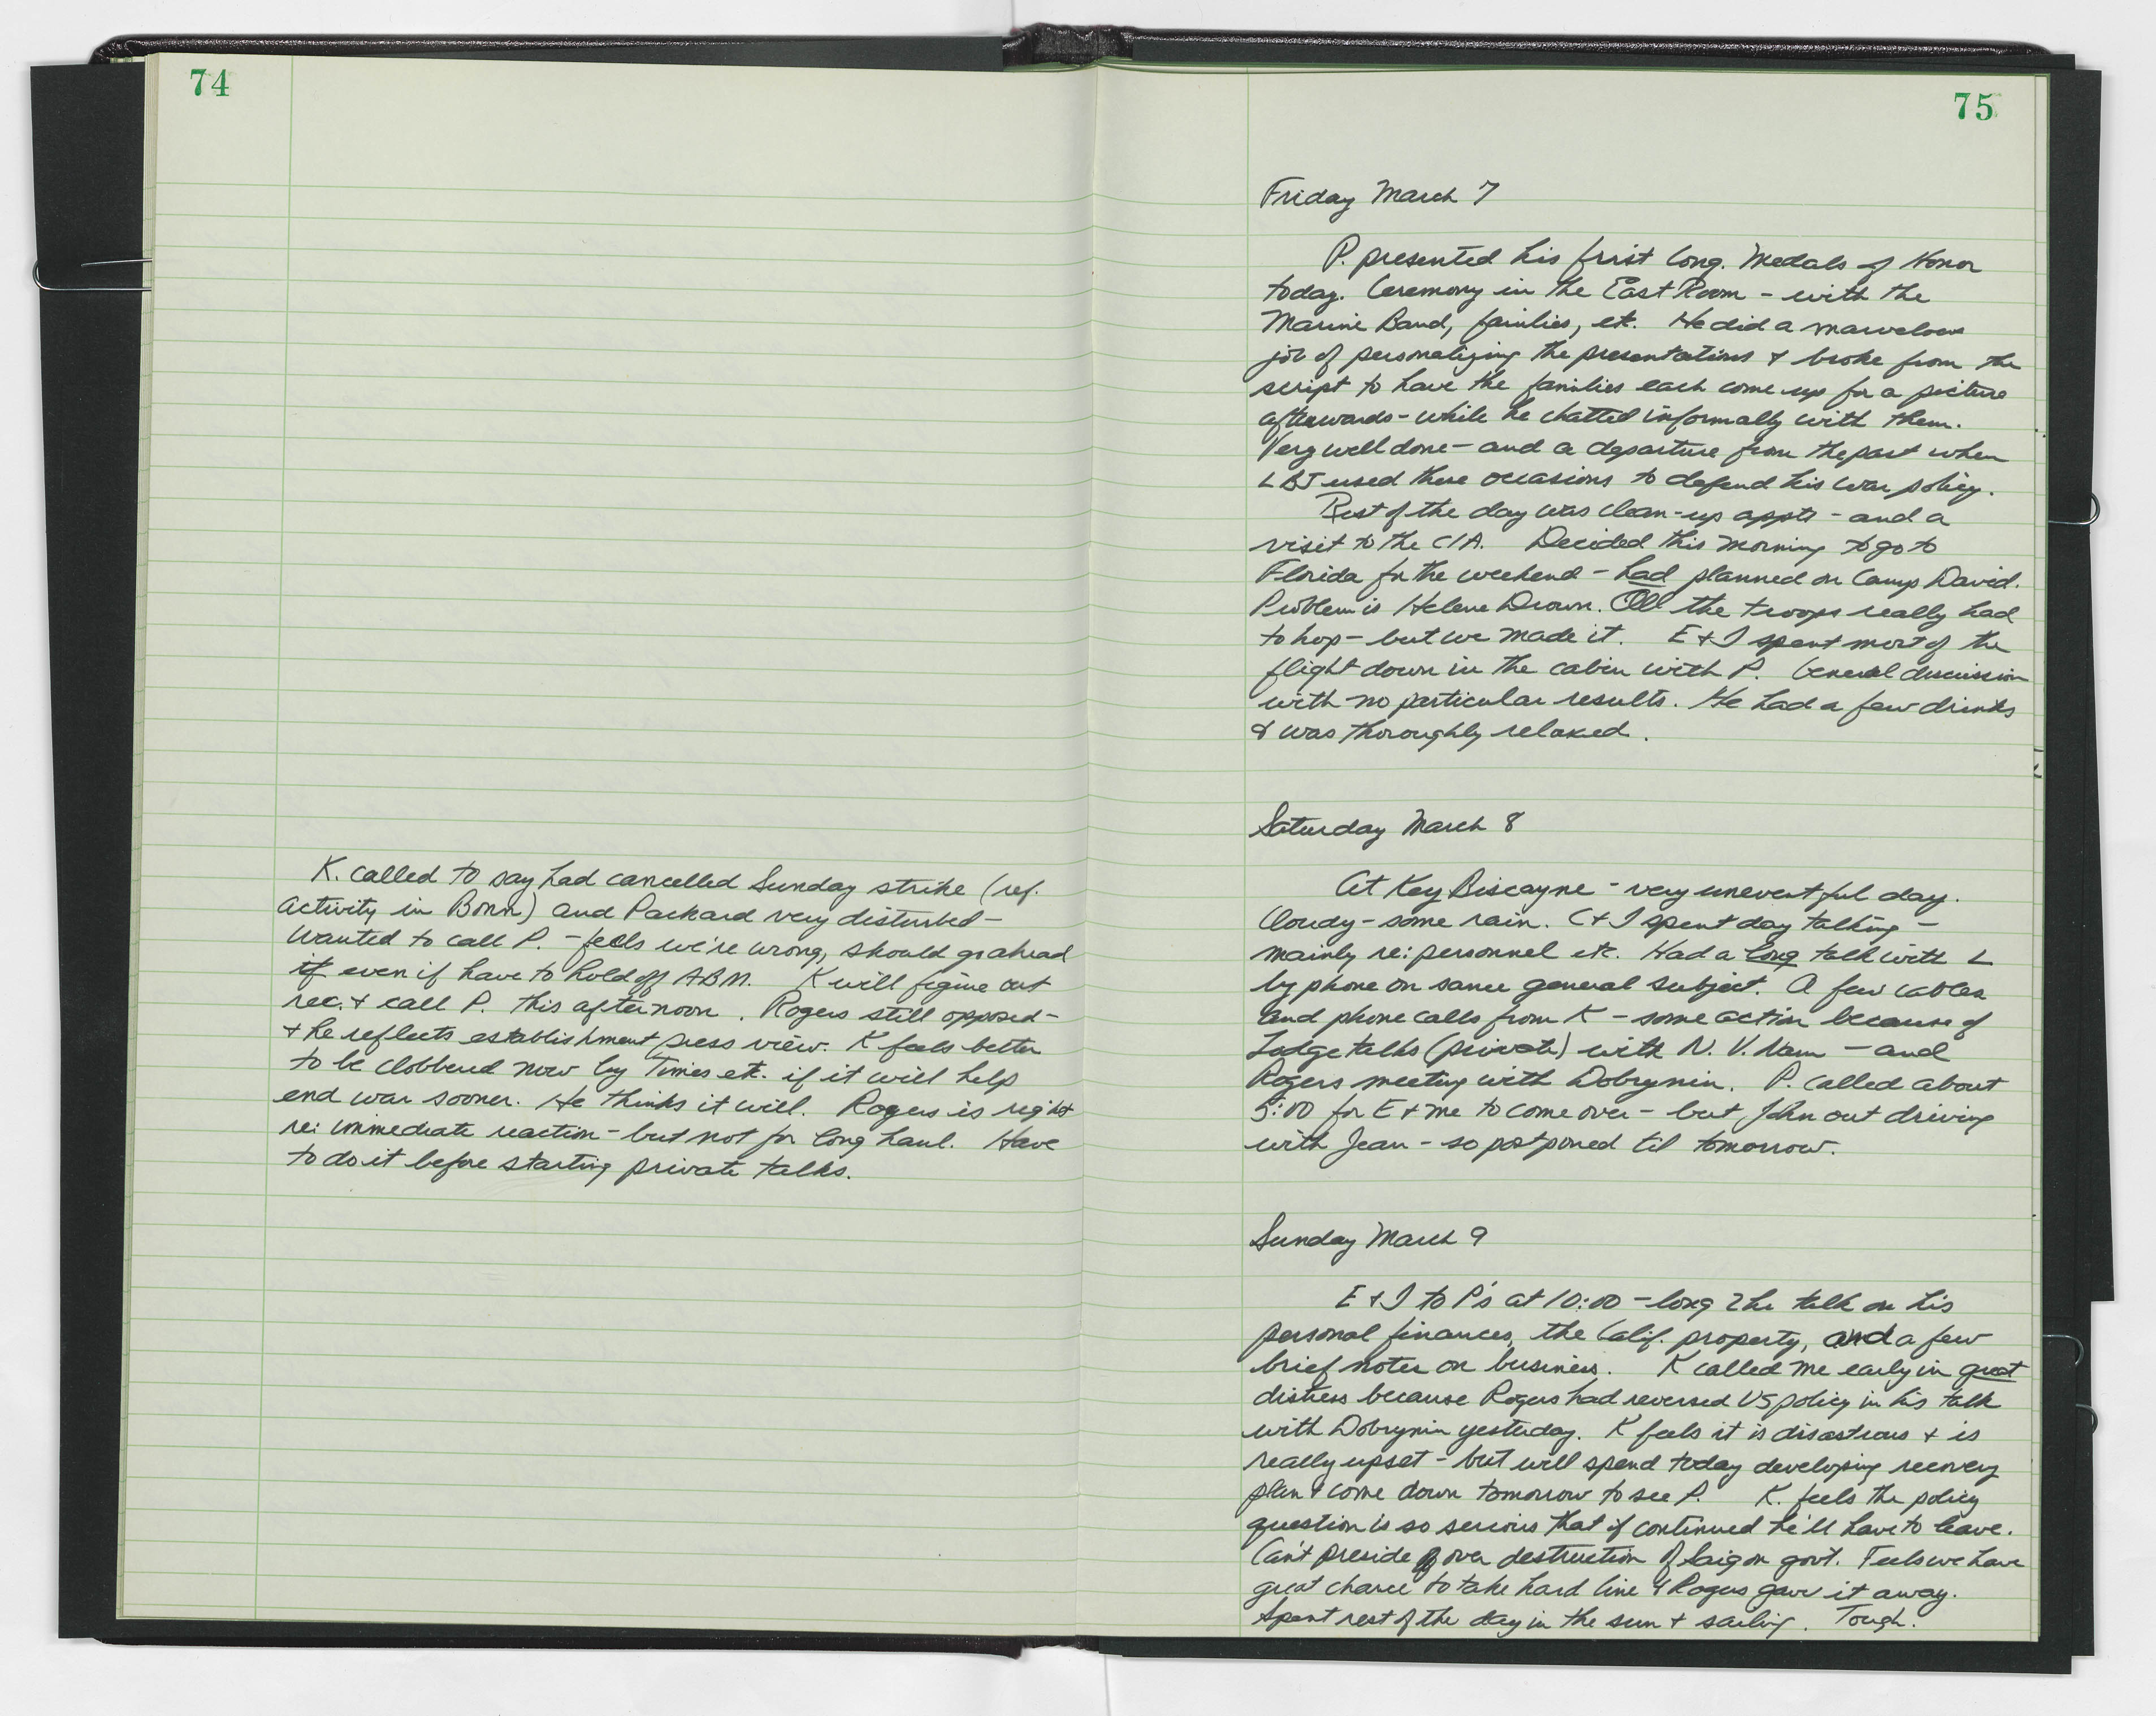 74
K. called to say had cancelled Sunday strike (ref.
activity in Bonn) and Packard very disturbed -
wanted to call P. - feels we're wrong, should go ahead
if even if have to hold off ABM. K will figure out
rec. + call P. this afternoon. Rogers still opposed -
+ he reflects establishment press view. K feels better
to be clobbered now by Times etc. if it will help
end war sooner. He thinks it will. Rogers is right
re: immediate reaction - but not for long haul. Have
to do it before starting private talks.
75
Friday March 7
P. presented his first Cong. Medals of Honor
today. Ceremony in the East Room - with the
Marine Band, families, etc. He did a marvelous
job of personalizing the presentations + broke from the
script to have the families each come up for a picture
afterwards - while he chatted informally with them.
Very well done - and a departure from the past when
LBJ used these occasions to defend his war policy.
Rest of the day was clean-up appts - and a
visit to the CIA. Decided this morning to go to
Florida for the weekend - had planned on Camp David.
Problem is Helene Drown. All the troops really had
to hop - but we made it. E + I spent most of the
flight down in the cabin with P. General discussion
with no particular results. He had a few drinks
& was thoroughly relaxed.
Saturday March 8
At Key Biscayne - very uneventful day.
Cloudy - some rain. C + I spent day talking -
mainly re: personnel etc. Had a long talk with L
by phone on same general subject. A few cables
and phone calls from K - some action because of
Lodge talks (private) with N. V. Nam - and
Rogers meeting with Dobrynin. P. called about
5:00 for E + me to come over - but John out driving
with Jean - so postponed til tomorrow.
Sunday March 9
E + I to P's at 10:00 - long 2 hr talk on his
personal finances, the Calif. property, and a few
brief notes on business. K called me early in great
distress because Rogers had reversed US policy in his talk
with Dobrynin yesterday. K feels it is disastrous + is
really upset - but will spend today developing recovery
plan & come down tomorrow to see P. K. feels the policy
question is so serious that if continued he'll have to leave.
Can't preside over destruction of Saigon govt. Feels we have
great chance to take hard line & Rogers gave it away.
Spent rest of the day in the sun + sailing. Tough.